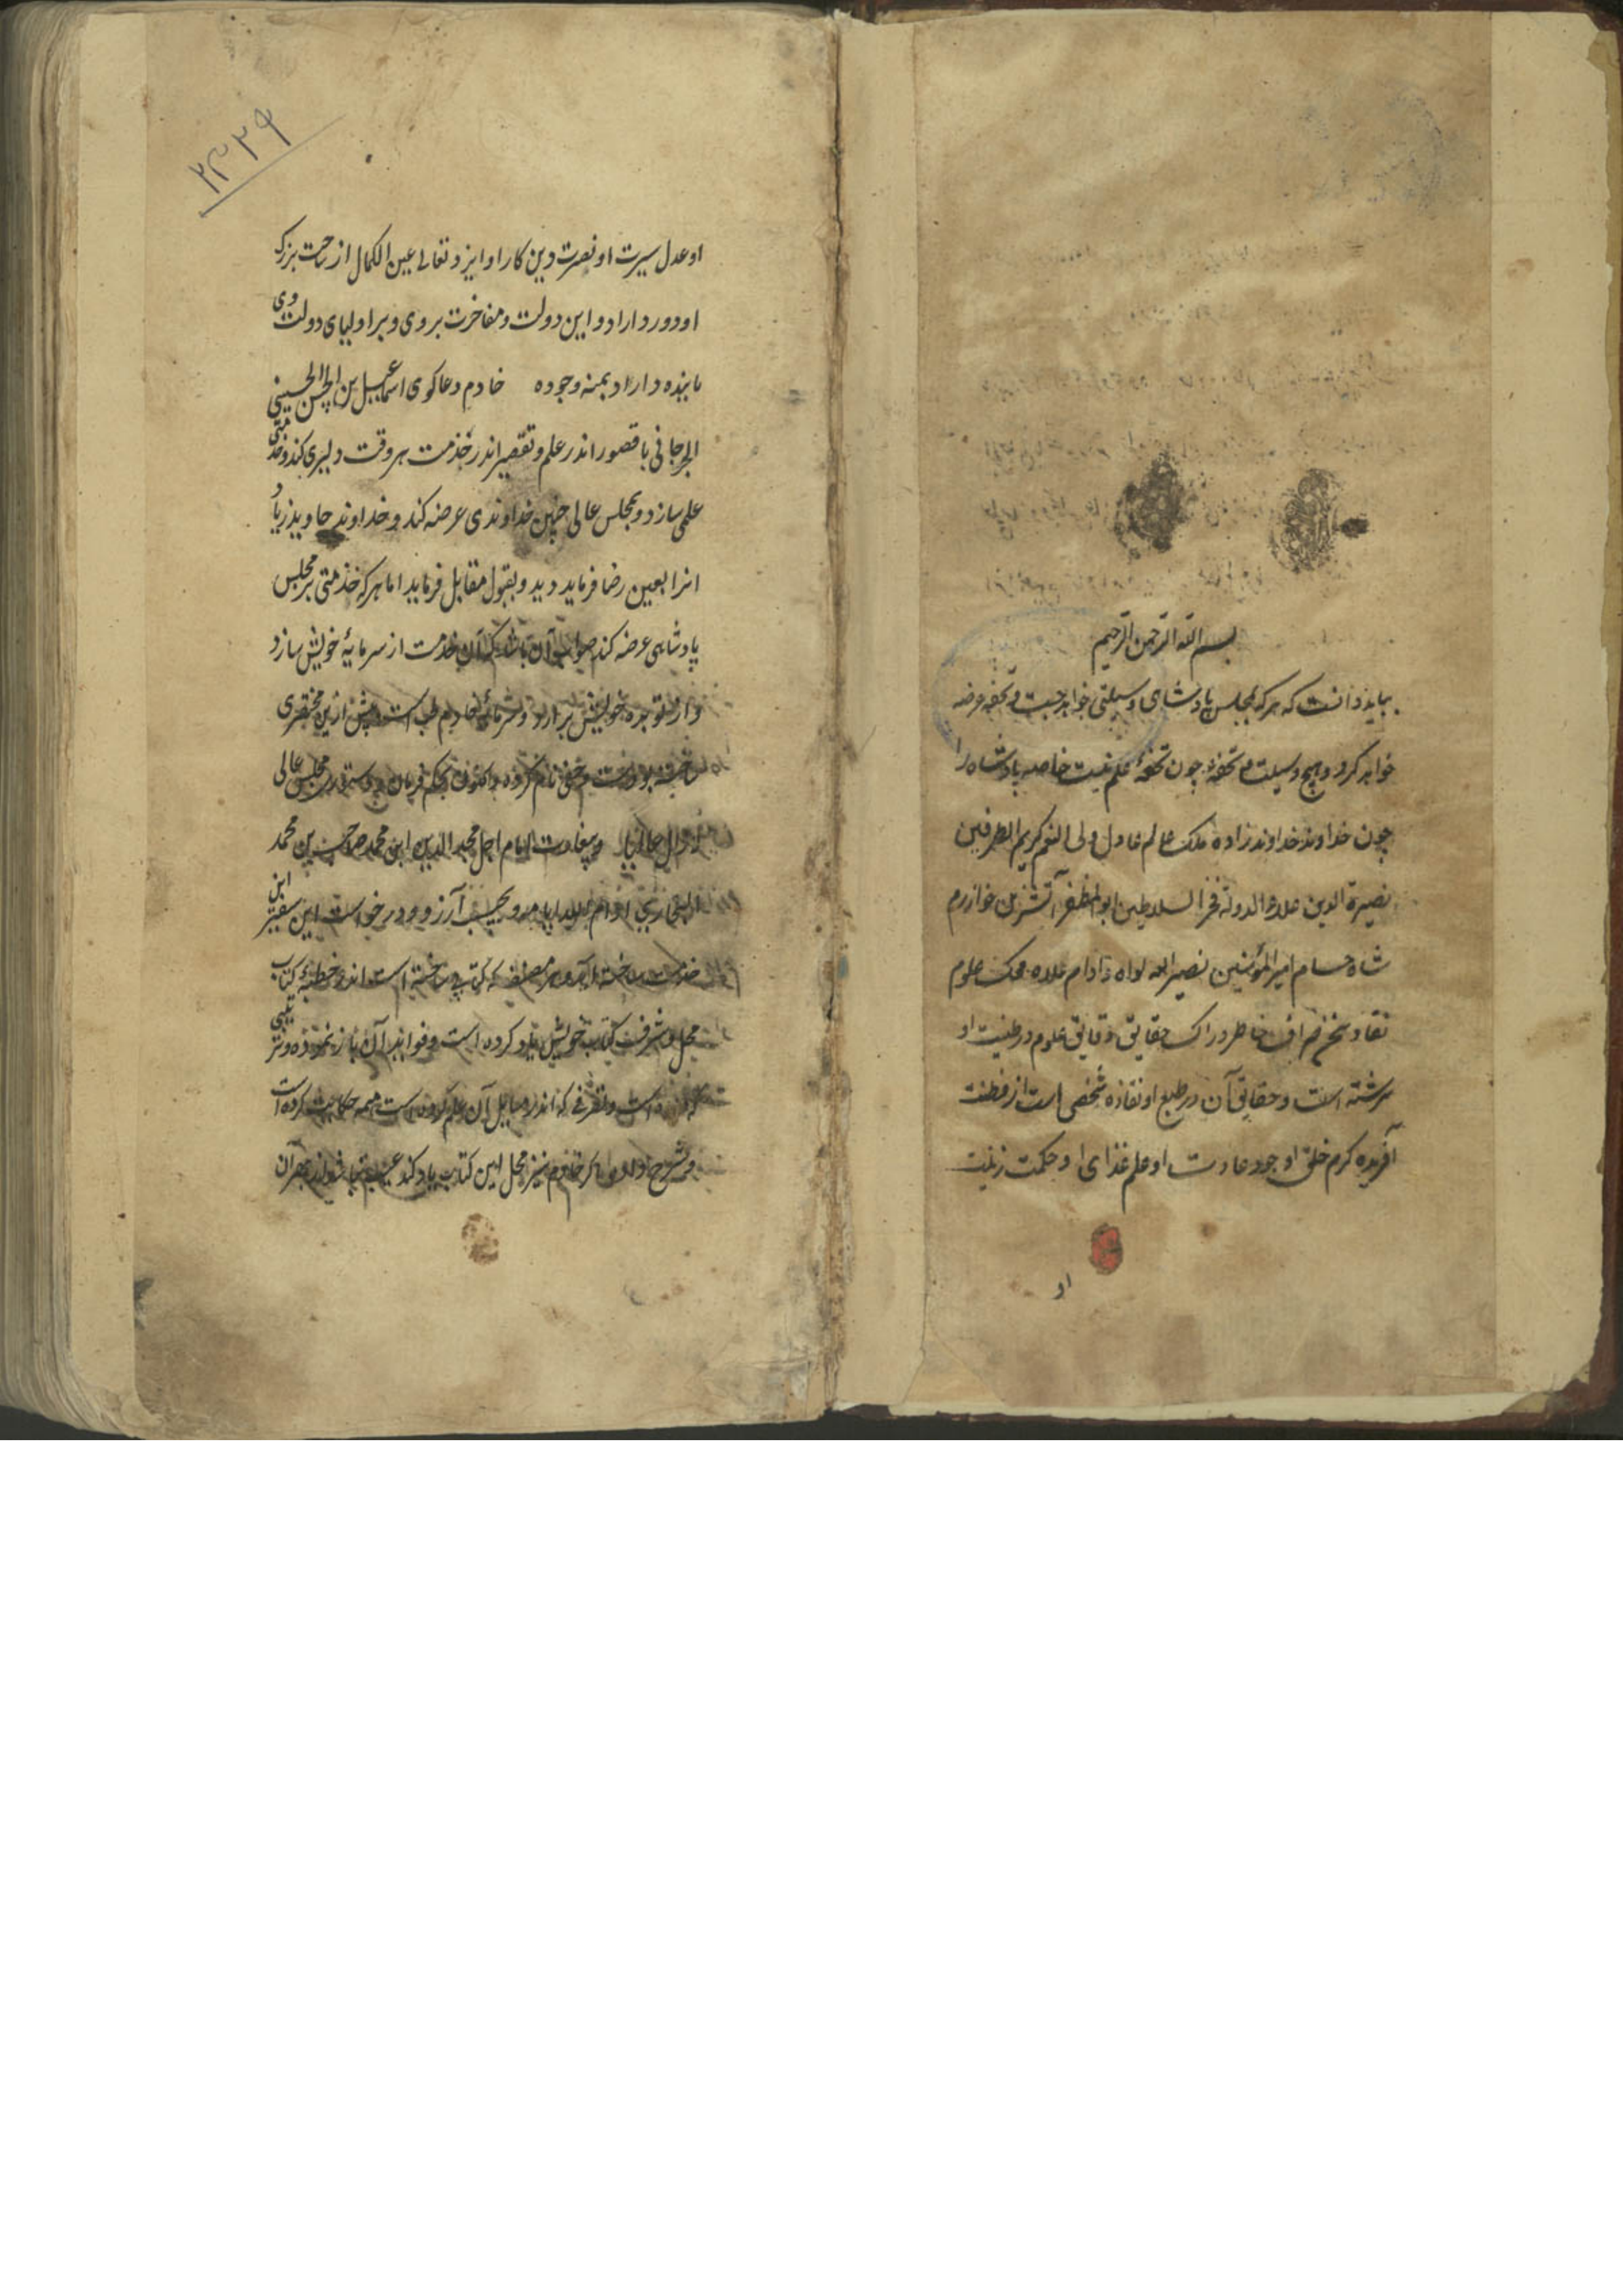 بسم الله الرحمن الرحیم
بباید دانست که هر که بمجلس پادشاهی وسیلتی خواهد جست و تحفه عرضه
خواهد کرد و هیچ وسیلت و تحفهٔ چون تحفهٔ علم نیست خاصه پادشاه را
چون خداوند خداوند زاده ملک عالم عادل ولی النعم کریم الطرفین
نصیرة الدین علاء الدولة فخر السلاطین ابو المظفر آتسز بن خوارزم
شاه حسام امیر المؤمنین نصیر الله لواه و ادام علاه محک علوم
نقاد سخن صراف خاطر دراک حقایق دقایق علوم در طینت او
سرشته است و حقایق آن در طبع او نقاده شخصی است از فطنت
آفریده کرم خلق او جود عادت او علم غذای او حکمت زینت
او
۲۳۲۹
او عدل سیرت او نصرت دین کار او ایزد تعالی عین الکمال از ساحت بزرک
او دور داراد و این دولت و مفاخرت بر وی و بر اولیای دولت وی
پاینده داراد بمنه وجوده خادم دعا کوی اسماعیل بن الحسن الحسینی
الجرجانی با قصور اندر علم و تقصیر اندر خدمت هر وقت دلیری کند و خدمتی
علمی سازد و بمجلس عالی چنین خداوندی عرضه کند و خداوند جاوید زیاد
انرا بعین رضا فرماید دید و بقبول مقابل فرماید اما هر که خدمتی بر مجلس
پادشاهی عرضه کند صواب آن باشد که آن خدمت از سرمایهٔ خویش سازد
و از خویش برارد و سرمایهٔ خادم طب است پیش ازین مختصری
ساخته بودست و خفی نام کرده و اکنون بحکم فرمان مجلس عالی
امام اجل مجد الدین ابن محمد صاحب بن محمد
البخاری آرزو در خواست این
خدمت ساخته آمد و هر مصنف که کتابی ساخته است اندر خطبهٔ کتاب
محل و شرف کتاب خویش یاد کرده است و فواید آن باز نموده و ترتیبی
که اندر مسایل آن علم کرده است همه حکایت کرده است
و شرح داده اگر خادم نیز محل این کتاب یاد کند عیب نباشد از بهر آن